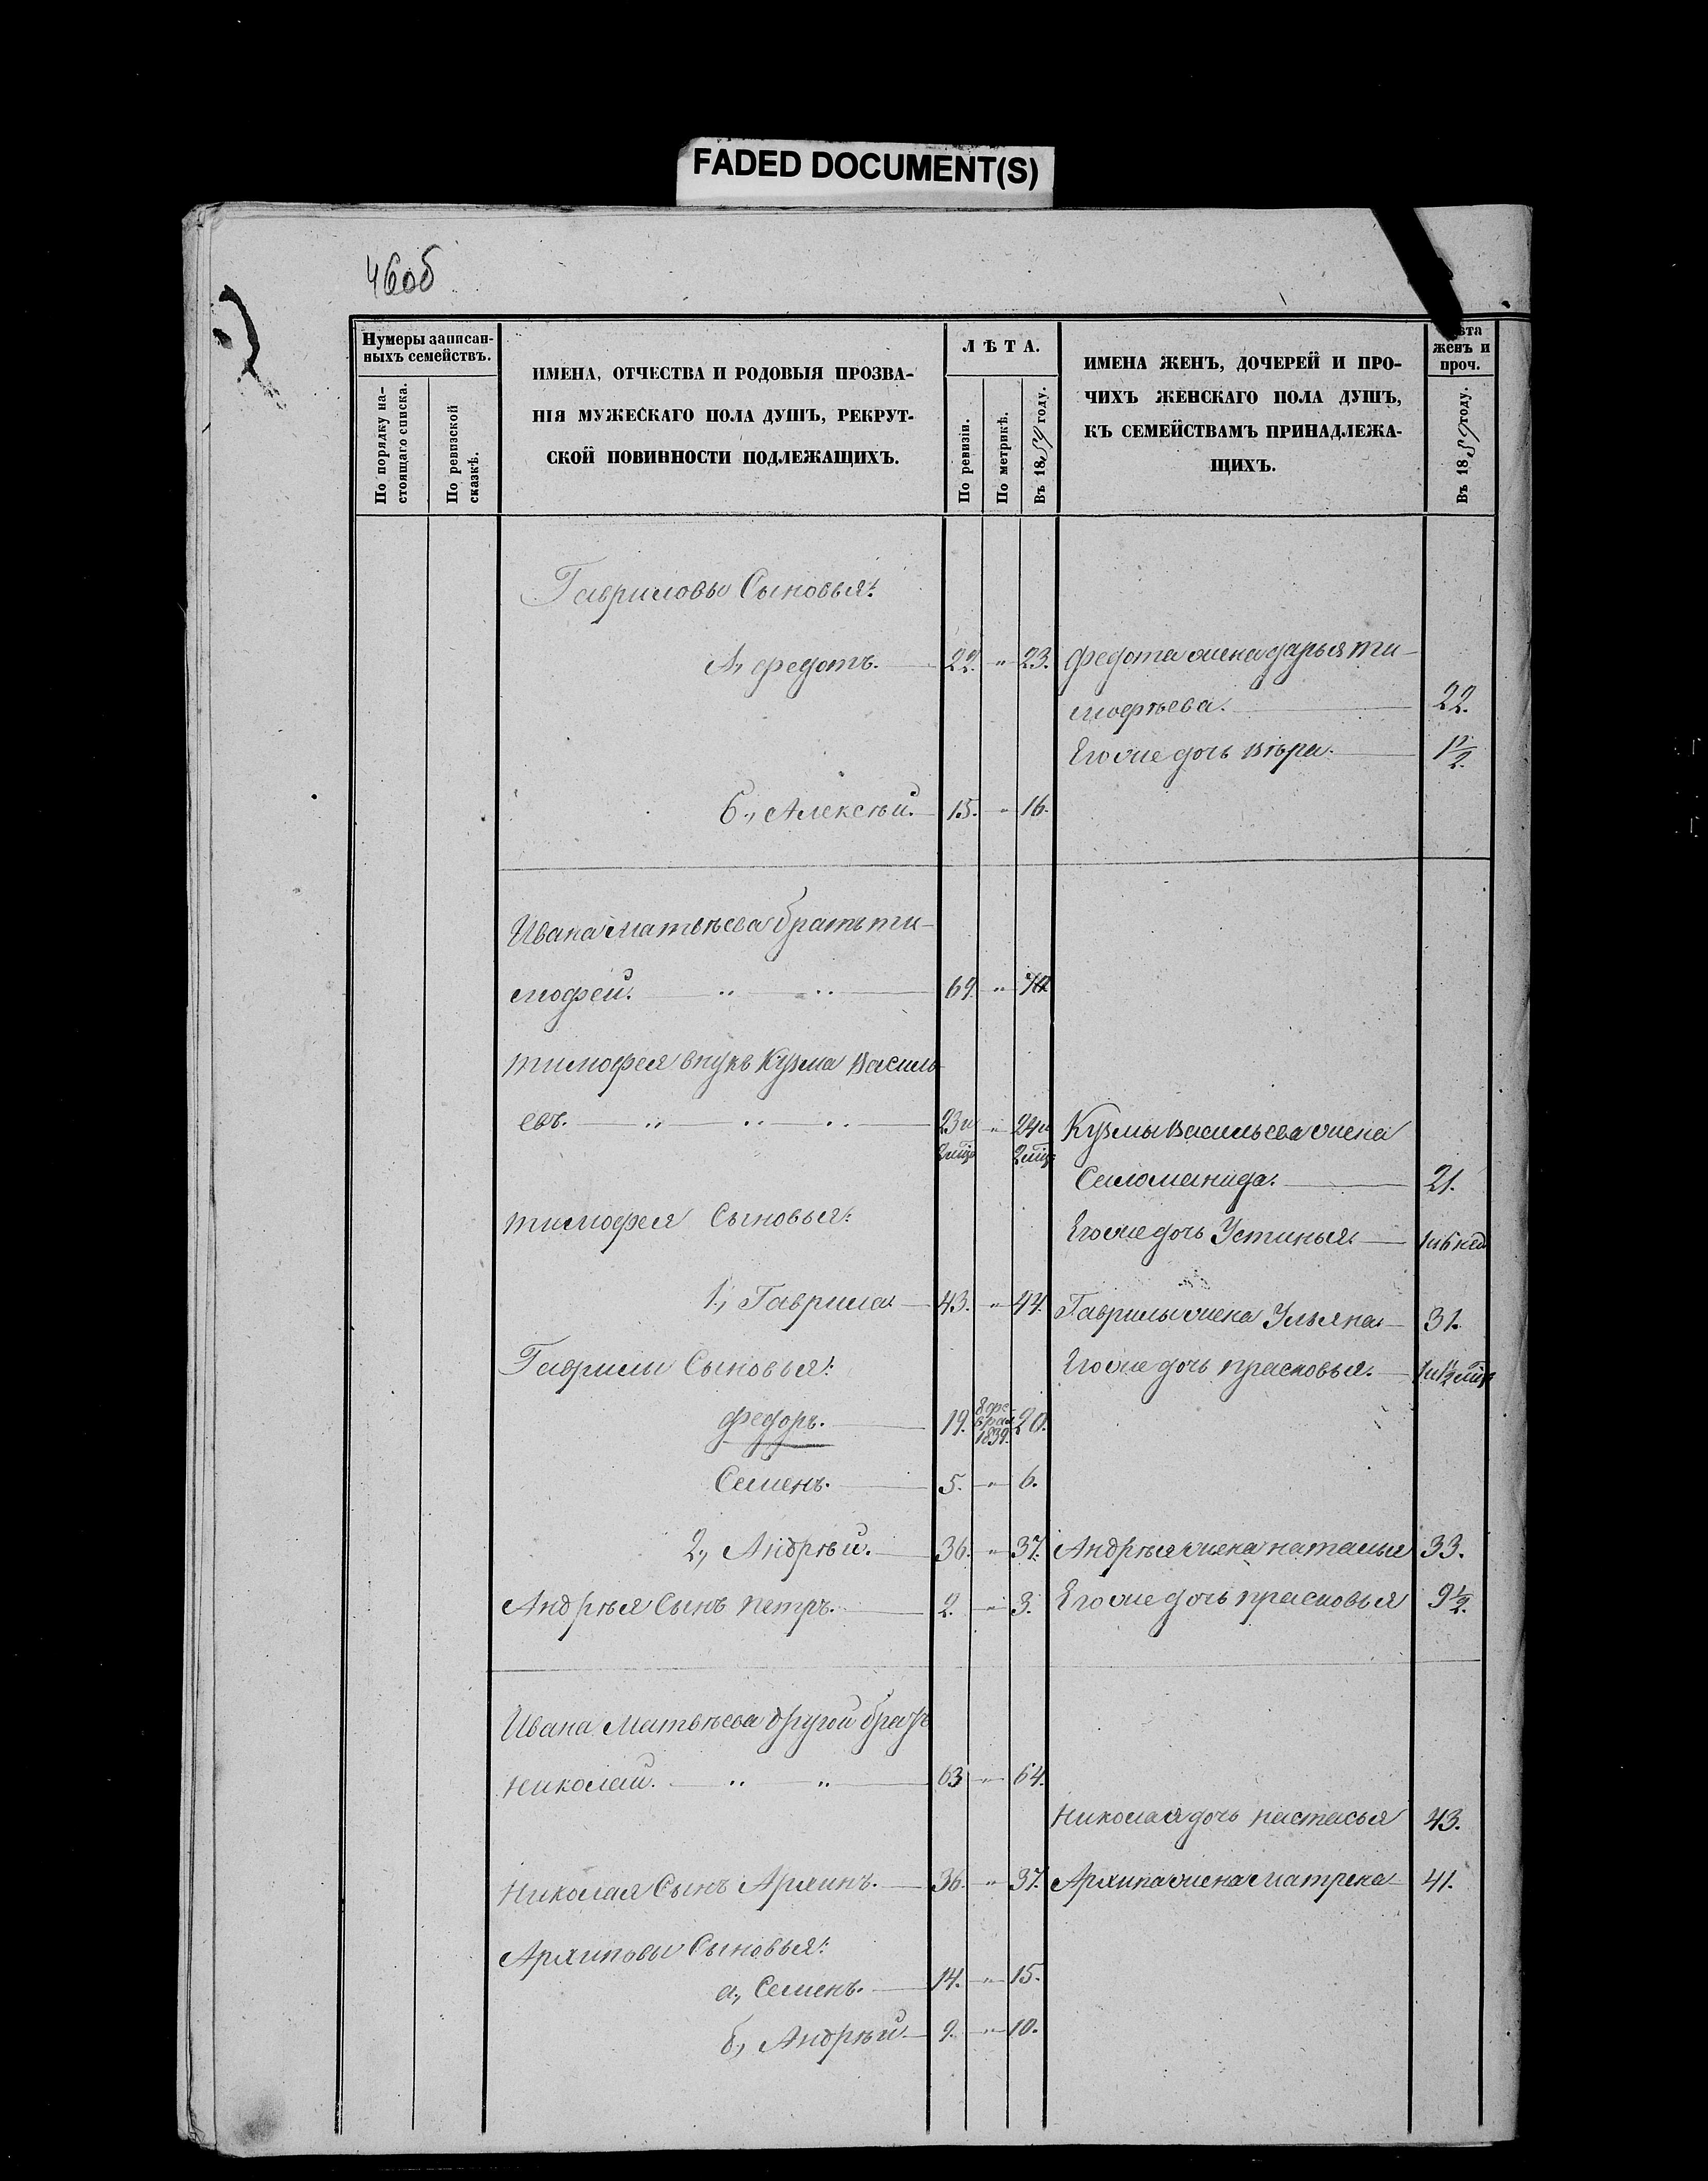 FADED DOCUMENT(S)
46об
Нумеры записан-
ныхъ семействъ.
По порядку на-
стоящаго списка.
По ревизской
сказкѣ.
ИМЕНА, ОТЧЕСТВА И РОДОВЫЯ ПРОЗВА-
НІЯ МУЖЕСКАГО ПОЛА ДУШЪ, РЕКРУТ-
СКОЙ ПОВИННОСТИ ПОДЛЕЖАЩИХЪ.
ЛѢТА.
По ревизіи.
По метрикѣ.
Въ 1859 году.
ИМЕНА ЖЕНЪ, ДОЧЕРЕЙ И ПРО-
ЧИХЪ ЖЕНСКАГО ПОЛА ДУШЪ,
КЪ СЕМЕЙСТВАМЪ ПРИНАДЛЕЖА-
ЩИХЪ.
женъ и
проч.
Въ 1859 году.
Гавриловы Сыновья:
А., федотъ. 22. " 23. федота жена дарья ти-
мофѣева. 22.
Его же дочь вѣра. 1/2.
б., Алексѣй. 15. " 16.
Ивана матвѣева братъ ти-
мофей. " " 69. " 70
тимофея внукъ Кузма Василь-
евъ. " " " 23 и " 24 и Кузмы Васильева жена
2 мѣц 2 мѣц
Саломанида. 21.
тимофея Сыновья:
Его же дочь Устинья. 1 и 6 нед
1., Гаврила. 43. " 44. Гаврилы жена Ульяна 31.
Гаврилы Сыновья: Его же дочь прасковья.
федоръ. 19. 8 фе-
врал
1839. 20.
Семенъ. 5. " 6.
2., Андрѣй. 36. " 37. Андрѣя жена наталья 33.
Андрѣя Сынъ петръ. 2. " 3. Его же дочь прасковья 9 1/2.
Ивана Матвѣева другой братъ
николай. " " 63 " 64.
николая дочь настасья 43.
николая Сынъ Архипъ. 36. " 37. Архипа жена матрена 41.
Архиповы Сыновья:
а., Семенъ. 14. " 15.
б., Андрѣй. 9. " 10.